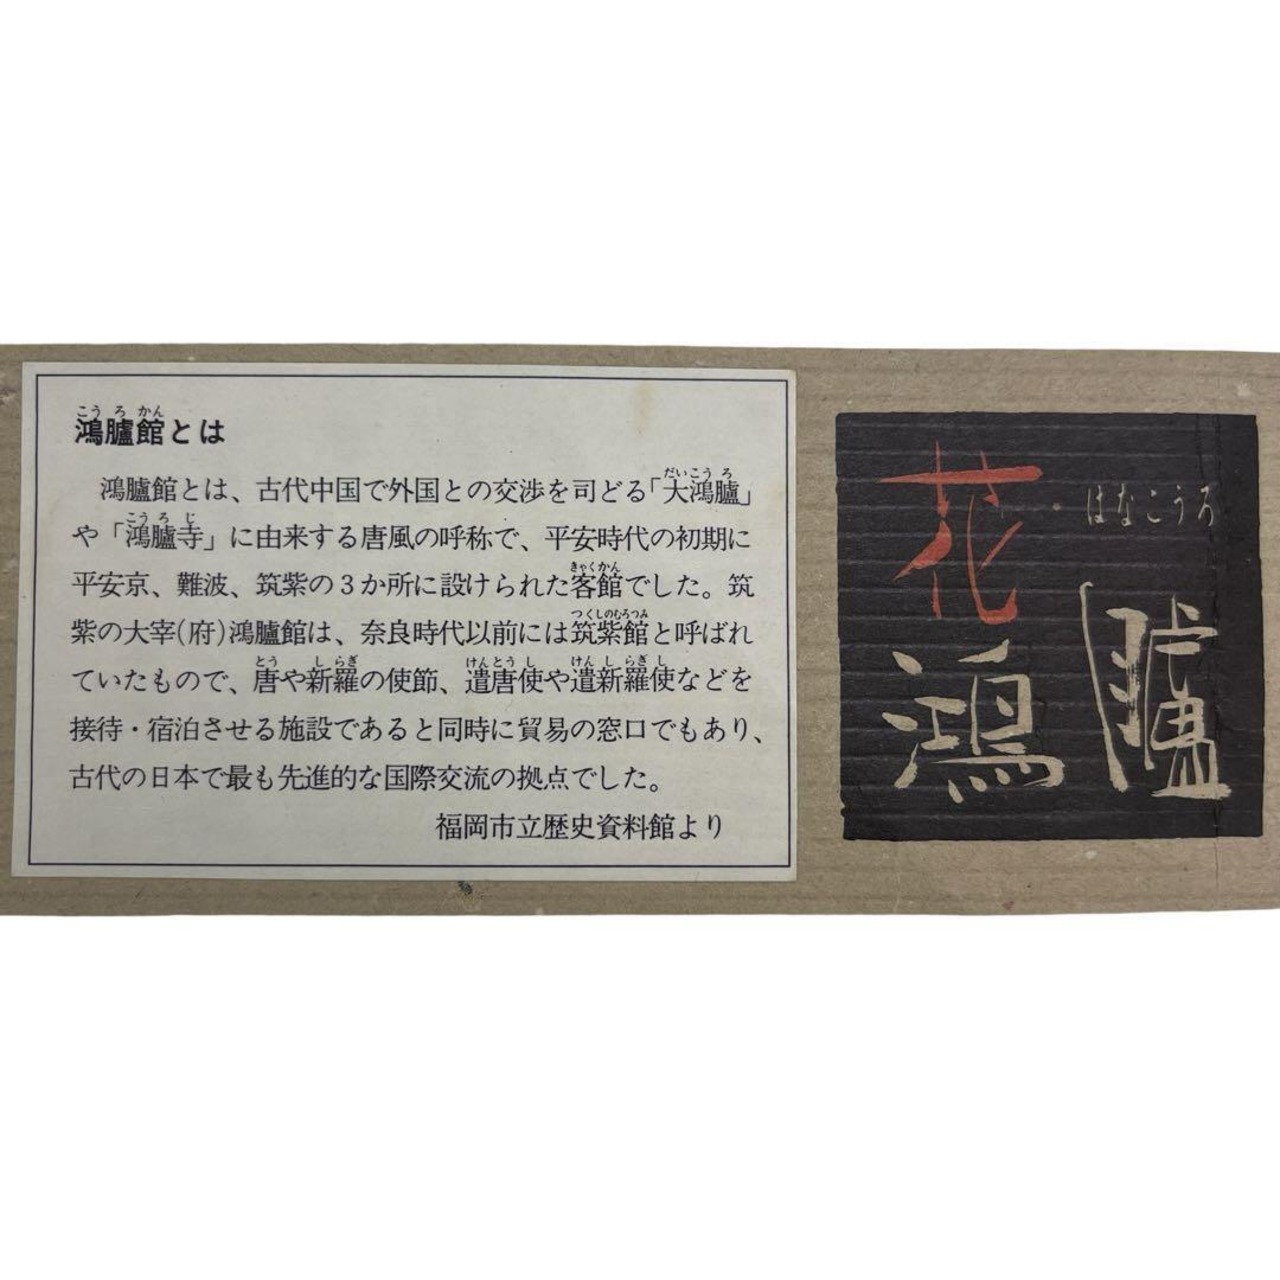 鴻臚館とは
鴻臚館とは、古代中国で外国との交渉を司どる「大鴻臚」
や「鴻臚寺」に由来する唐風の呼称で、平安時代の初期に
平安京、難波、筑紫の3か所に設けられた客館でした。筑
紫の大宰(府)鴻臚館は、奈良時代以前には筑紫館と呼ばれ
ていたもので、唐や新羅の使節、遣唐使や遣新羅使などを
接待・宿泊させる施設であると同時に貿易の窓口でもあり、
古代の日本で最も先進的な国際交流の拠点でした。
福岡市立歴史資料館より
花鴻臚
はなこうろ